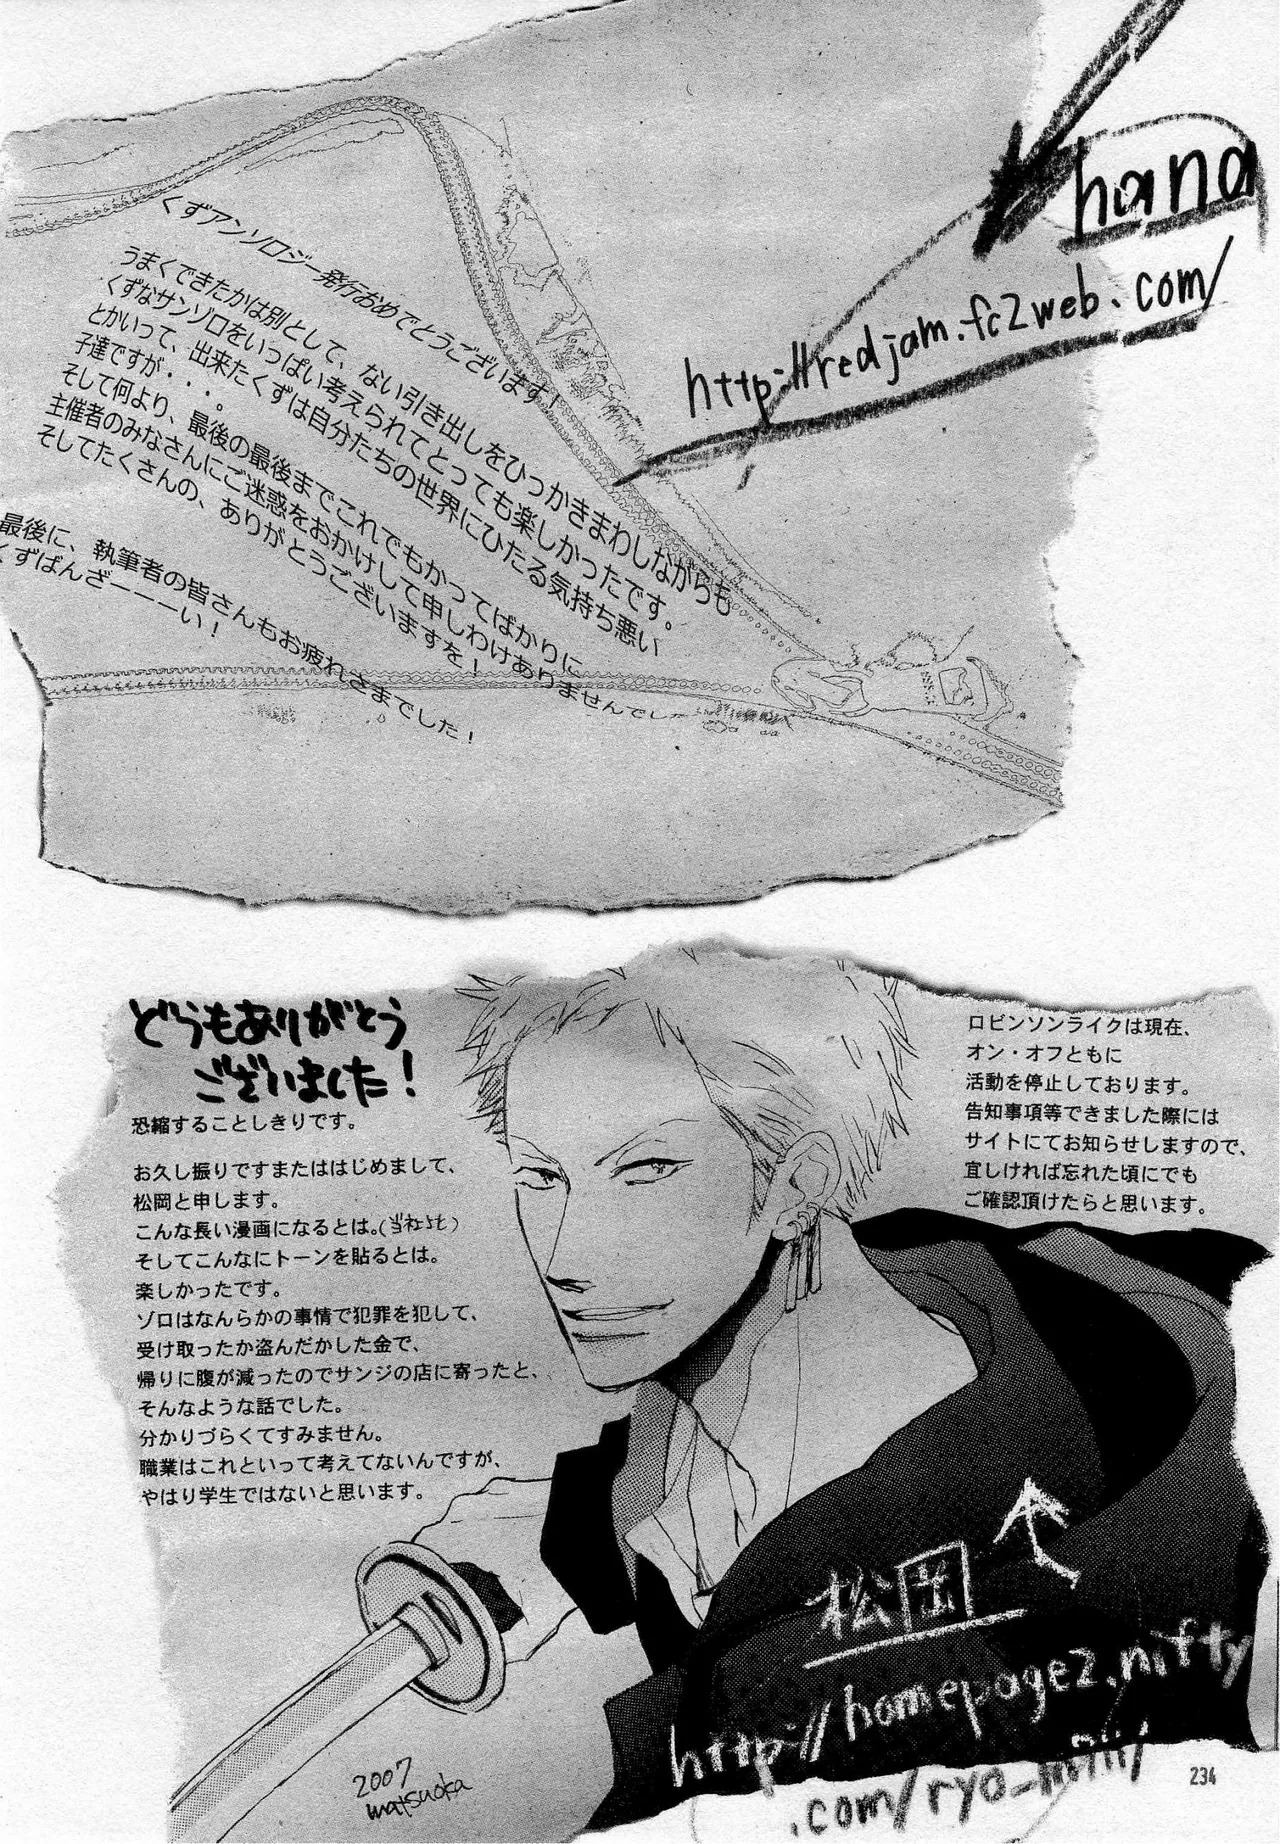 hana
http://redjam.fc2web.com/
くずアンソロジー発行おめでとうございます!
うまくできたかは別として、ない引き出しをひっかきまわしながらも
くずなサンゾロをいっぱい考えられてとっても楽しかったです。
とかいって、出来たくずは自分たちの世界にひたる気持ち悪い
子達ですが・・・。
そして何より、最後の最後までこれでもかってばかりに
主催者のみなさんにご迷惑をおかけして申しわけありませんでした
そしてたくさんの、ありがとうございますを!
最後に、執筆者の皆さんもお疲れさまでした!
くずばんざーーーい!
どうもありがとう
ございました!
恐縮することしきりです。
お久し振りですまたははじめまして、
松岡と申します。
こんな長い漫画になるとは。(当社比)
そしてこんなにトーンを貼るとは。
楽しかったです。
ゾロはなんらかの事情で犯罪を犯して、
受け取ったか盗んだかした金で、
帰りに腹が減ったのでサンジの店に寄ったと、
そんなような話でした。
分かりづらくてすみません。
職業はこれといって考えてないんですが、
やはり学生ではないと思います。
ロビンソンライクは現在、
オン・オフともに
活動を停止しております。
告知事項等できました際には
サイトにてお知らせしますので、
宜しければ忘れた頃にでも
ご確認頂けたらと思います。
松岡
http://homepage2.nifty
.com/ryo_
2007
matsuoka
234